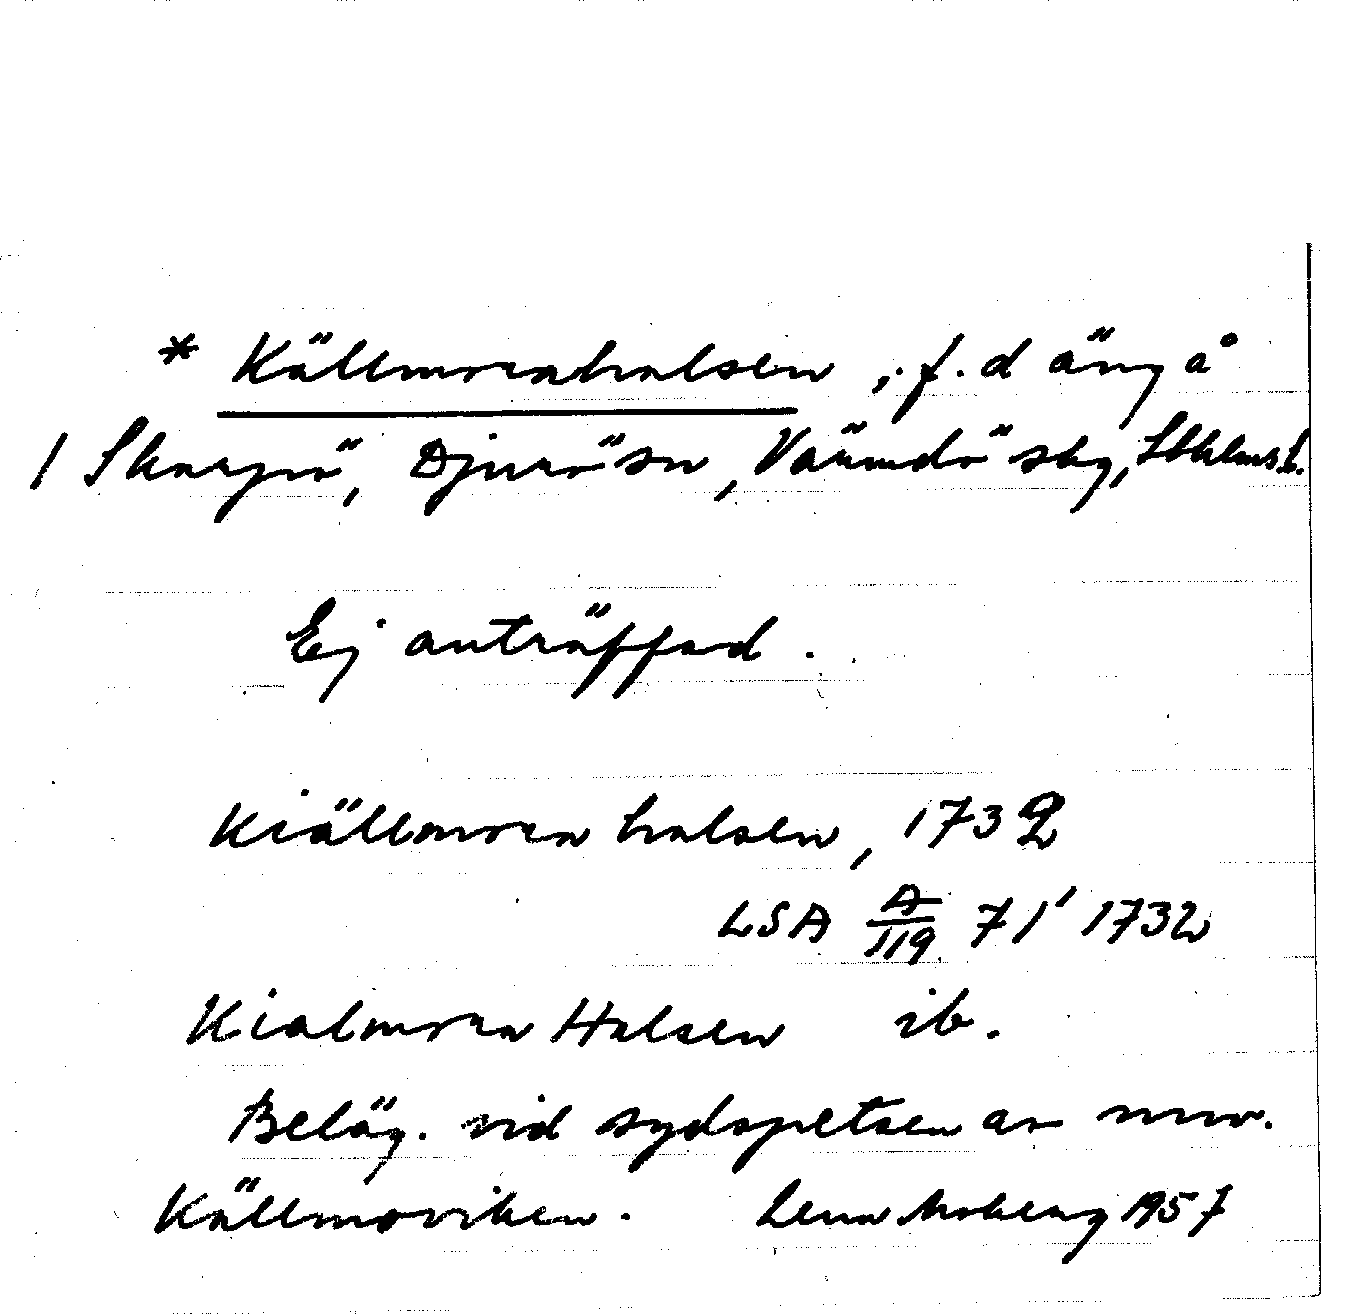 * Källmorahalsen, f.d äng å
1 Skarpö, Djurö sn, Värmdö skg, Sthlms l.
Ej anträffad.
Kiällmora halsen, 1732
LSA A/119 71' 1732
Kialmora Halsen ib.
Beläg. vid sydspetsen av nuv.
Källmoraviken. Lena Moberg 1957